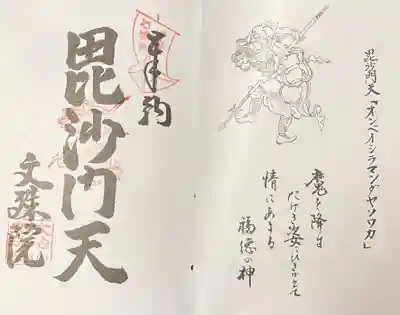 毘沙門天「オンベイシラマンダヤソワカ」
魔を降す
たけき姿にひきかへて
情にあまる
福徳の神
奉納
毘沙門天
文殊院